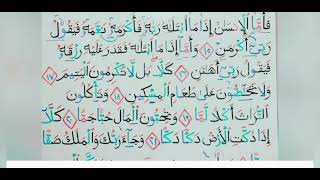 فَأَمَّا ٱلۡإِنسَٰنُ إِذَا مَا ٱبۡتَلَىٰهُ رَبُّهُۥ فَأَكۡرَمَهُۥ وَنَعَّمَهُۥ فَيَقُولُ
رَبِّيٓ أَكۡرَمَنِ ١٥ وَأَمَّآ إِذَا مَا ٱبۡتَلَىٰهُ فَقَدَرَ عَلَيۡهِ رِزۡقَهُۥ
فَيَقُولُ رَبِّيٓ أَهَٰنَنِ ١٦ كَلَّاۖ بَل لَّا تُكۡرِمُونَ ٱلۡيَتِيمَ ١٧
وَلَا تَحَٰٓضُّونَ عَلَىٰ طَعَامِ ٱلۡمِسۡكِينِ ١٨ وَتَأۡكُلُونَ
ٱلتُّرَاثَ أَكۡلٗا لَّمّٗا ١٩ وَتُحِبُّونَ ٱلۡمَالَ حُبّٗا جَمّٗا ٢٠ كَلَّآۖ
إِذَا دُكَّتِ ٱلۡأَرۡضُ دَكّٗا دَكّٗا ٢١ وَجَآءَ رَبُّكَ وَٱلۡمَلَكُ صَفّٗا